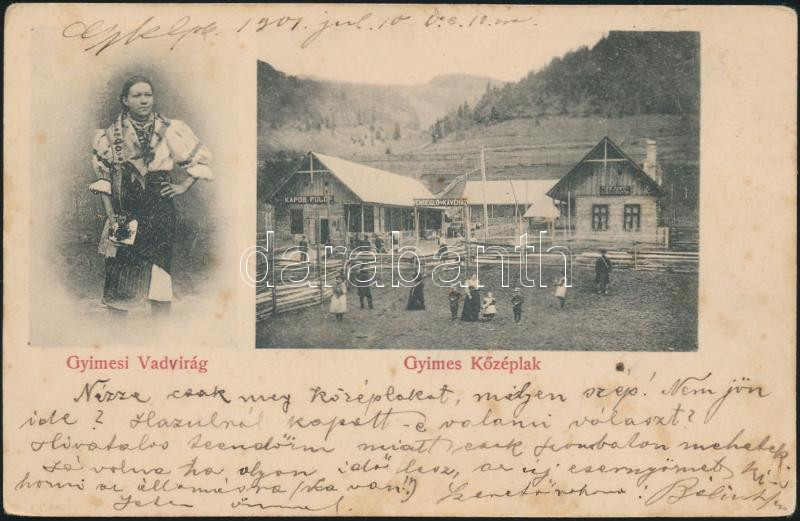 1901. jul. 10
KAPOR FÜLÖP
VENDÉGLŐ és KÁVÉHÁZ
darabanth
Gyimesi Vadvirág
Gyimes Kőzéplak
Nézze csak meg Középlakot, milyen szép! Nem jön
ide? Hazulról kapott-e valami választ?
Hivatalos teendőim miatt csak szombaton mehetek.
Jó volna ha olyan idő lesz, az új esernyőmet ki-
honni az állomásra (Ha van!) Szerető rokona: Bálint
Isten önnel.